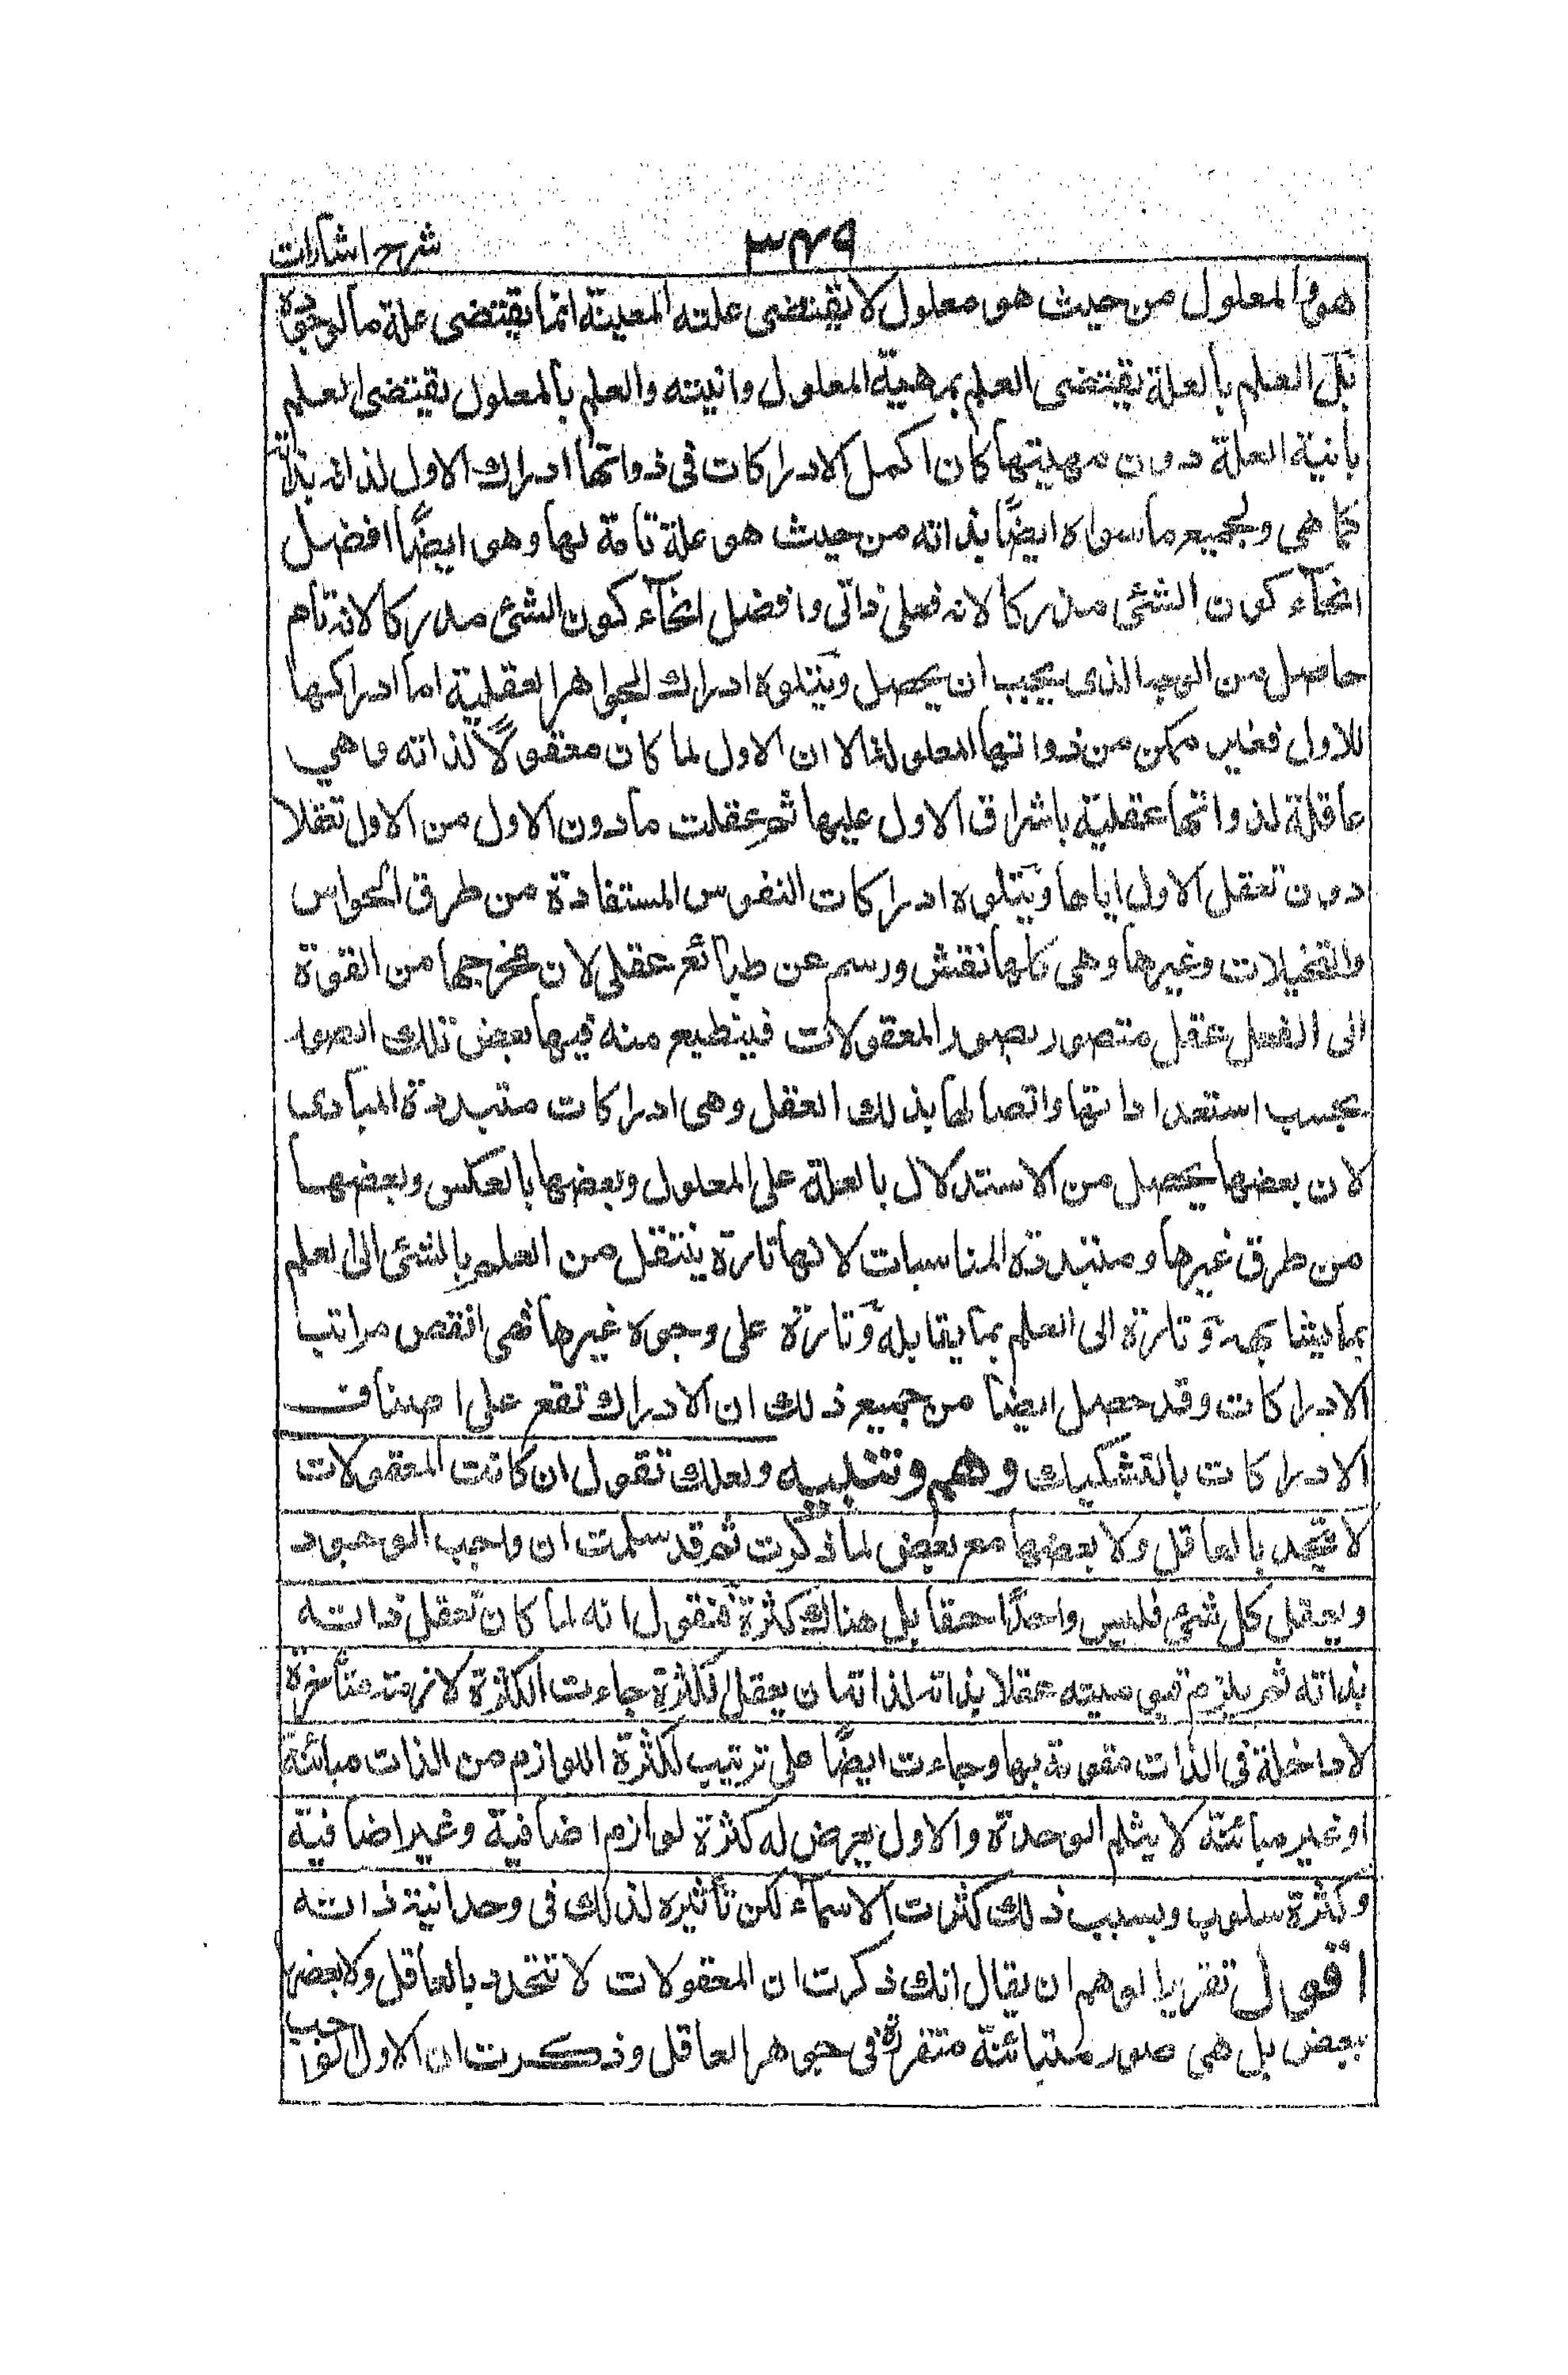 شرح اشارات
٣٤٩
هو والمعلول من حيث هو معلول لا يقتضى علته المعينة انما يقتضى علة ما لوجوده
بل العلم بالعلة يقتضى العلم بمهية المعلول وانيته والعلم بالمعلول يقتضى العلم
بانية العلة دون مهيتها كان اكمل الادراكات فى ذواتها ادراك الاول لذاته بذاته
كما هى ولجميع ما سواه ايضًا بذاته من حيث هو علة تامة لها وهو ايضًا افضل
انحآء كون الشئ مدركا لانه فعلى ذاتى وافضل انحآء كون الشئ مدركا لانه تام
حاصل من الوجه الذى يجب ان يحصل ويتلوه ادراك الجواهر العقلية اما ادراكها
للاول فغير ممكن من ذواتها المعلولة الا ان الاول لما كان معقولًا لذاته وهي
عاقلة لذواتها عقليّة باشراق الاول عليها ثم عقلت ما دون الاول من الاول تعقلا
دون تعقل الاول اياها ويتلوه ادراكات النفوس المستفادة من طرق الحواس
والتخيلات وغيرها وهى كلها نقش ورسم عن طبائع عقلى لان مخرجها من القوة
الى الفعل عقل متصور بصور المعقولات فينطبع منه فيها بعض تلك الصور
بحسب استعداداتها واتصالها بذلك العقل وهى ادراكات متبددة المبادى
لان بعضها يحصل من الاستدلال بالعلة على المعلول وبعضها بالعكس وبعضها
من طرق غيرها ومتبددة المناسبات لانها تارة ينتقل من العلم بالشئ الى العلم
بما يشابهه وتارة الى العلم بما يقابله وتارة على وجوه غيرها فهى انقص مراتب
الادراكات وقد حصل ايضا من جميع ذلك ان الادراك تقع على اصناف
الادراكات بالتشكيك وهم وتنبيه ولعلك تقول ان كانت المعقولات
لا تتحد بالعاقل ولا بعضها مع بعض لما ذكرت ثم قد سلمت ان واجب الوجود
ويعقل كل شئ فليس واحدًا حقا بل هناك كثرة فنقول انه لما كان تعقل ذاته
بذاته ثم يلزم قيوميته عقلا بذاته لذاته ان يعقل الكثرة جاءت الكثرة لازمة متأخرة
لا داخلة فى الذات مقومة بها وجاءت ايضًا على ترتيب لكثرة اللوازم من الذات مبائنة
او غير مبائنة لا يثلم الوحدة والاول يعرض له كثرة لوازم اضافية وغير اضافية
وكثرة سلوب وبسبب ذلك كثرت الاسمآء لكن تأثيره لذلك فى وحدانية ذاته
اقول تقرير الوهم ان يقال انك ذكرت ان المعقولات لا تتحد بالعاقل ولا بعضها
ببعض بل هى صور متبائنة متقررة فى جوهر العاقل وذكرت ان الاول الواجب